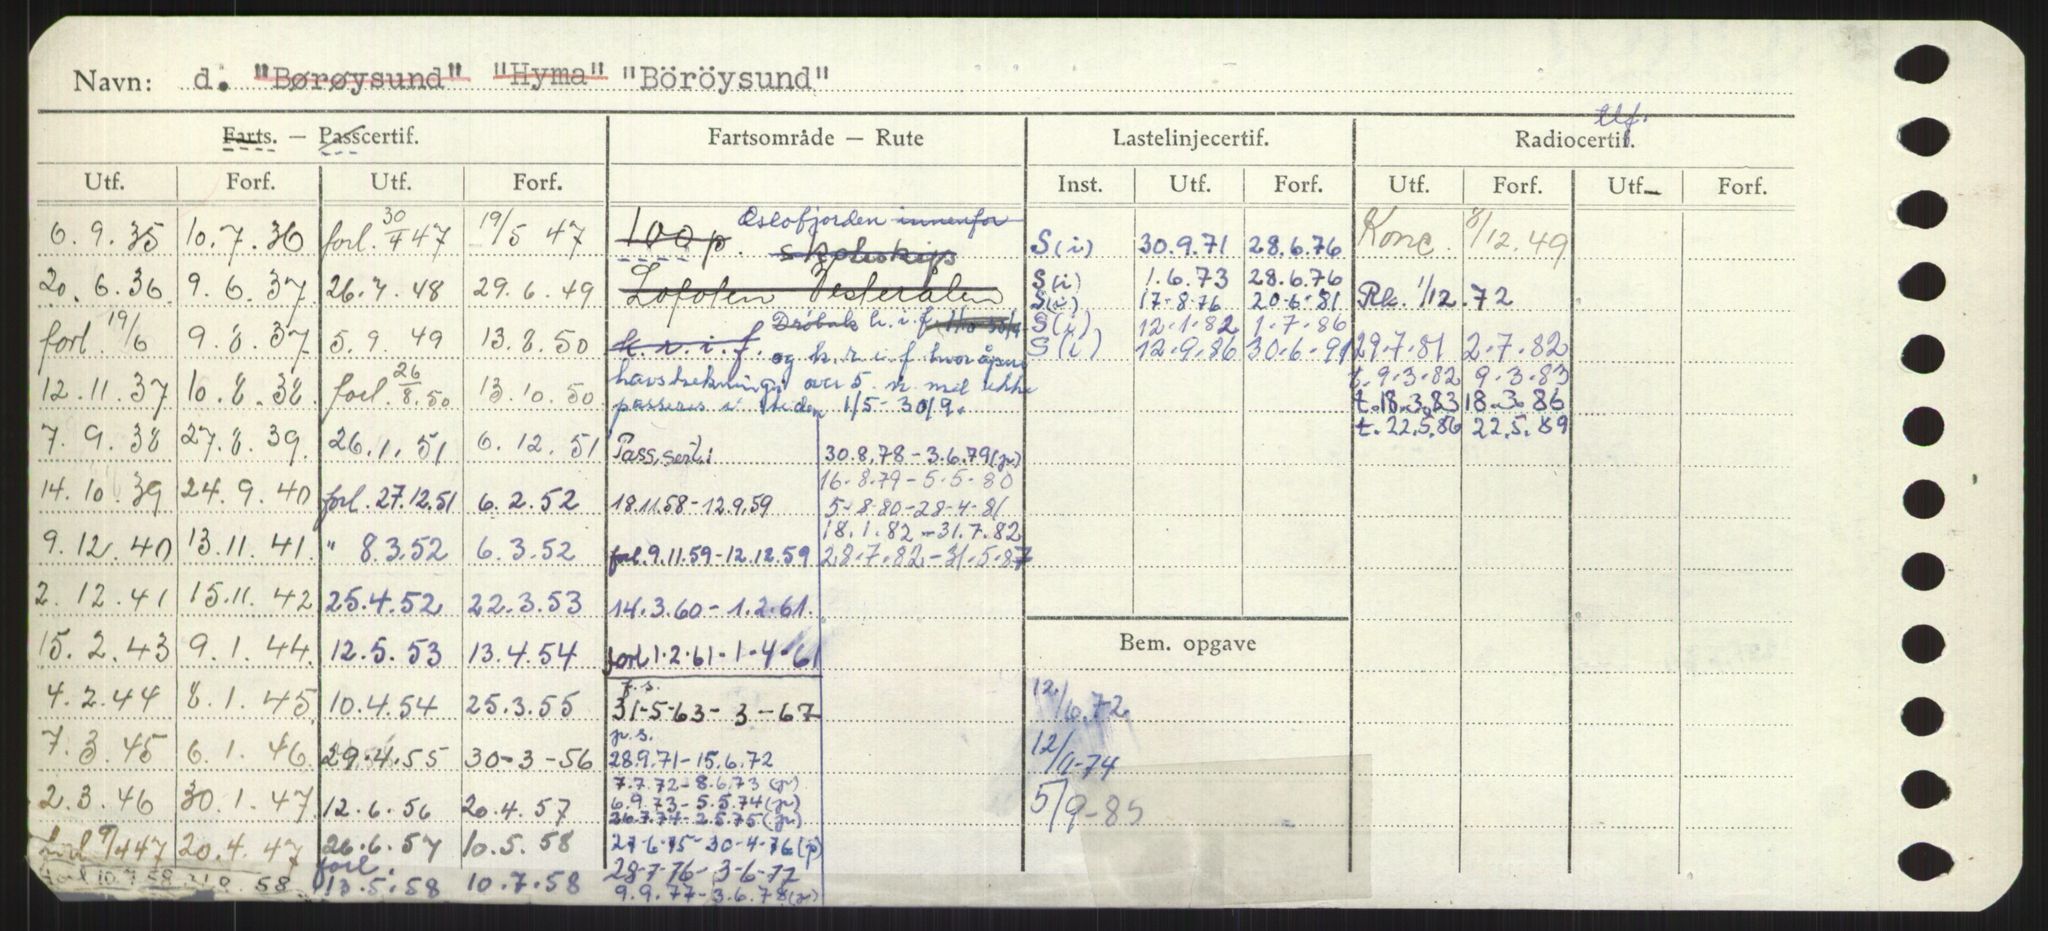 Navn: d. "Børøysund" "Hyma" "Böröysund"
Farts. — Passcertif. Fartsområde — Rute Lastelinjecertif. Radiocertif. tlf.
Utf. Forf. Utf. Forf. Inst. Utf. Forf. Utf. Forf. Utf. Forf.
6.9.35 10.7.36 forl. 30/4 47 19/5 47
20.6.36 9.6.37 26.7.48 29.6.49
forl. 19/6 9.8.37 5.9.49 13.8.50
12.11.37 10.8.38 forl. 26/8.50 13.10.50
7.9.38 27.8.39. 26.1.51 6.12.51
14.10.39 24.9.40 forl. 27.12.51 6.2.52
9.12.40 13.11.41. " 8.3.52 6.3.52
2.12.41 15.11.42 25.4.52 22.3.53
15.2.43 9.1.44. 12.5.53 13.4.54
4.2.44 8.1.45 10.4.54 25.3.55
7.3.45 6.1.46 29.4.55 30-3-56
2.3.46 30.1.47 12.6.56 20.4.57
forl 9/4 47 20.4.47 26.6.57 10.5.58
forl 10.7.58 58 forl. 13.5.58 10.7.58
100 p. Oslofjorden innenfor
skoleskip
Lofoten Vesterålen
Drøbak k.r.i.f.
k.r.i.f. og k.r.i.f hvor åpen
havstrekning over 5 n. mil ikke
passeres i tiden 1/5-30/9.
Pass.sert.:
18.11.58-12.9.59
forl. 9.11.59-12.12.59
14.3.60-1.2.61.
forl 1.2.61-1-4-61
31-5-63-3-67
p.s.
28.9.71-15.6.72
7.7.72-8.6.73 (p)
6.9.73-5.5.74 (p)
26.7.74-2.5.75 (p)
27-6-75-30-4-76 (p)
28-7-76-3-6-77
9.9.77-3.6.78 (p)
30.8.78-3.6.79 (p)
16.8.79-5.5.80
5-8-80-28-4-81
18.1.82-31.7.82
28.7.82-31.5.87
S(i) 30.9.71 28.6.76
S(i) 1.6.73 28.6.76
S(i) 17-8-76 20-6-81
S(i) 12.1.82 1.7.86
S(i) 12.9.86 30.6.91
Bem. opgave
12/6.72
12/11-74
5/9-85
Konc. 8/12.49
Rk. 1/12.72
29.7.81 2.7.82
t.9.3.82 9.3.83
t.18.3.83 18.3.86
t.22.5.86 22.5.89